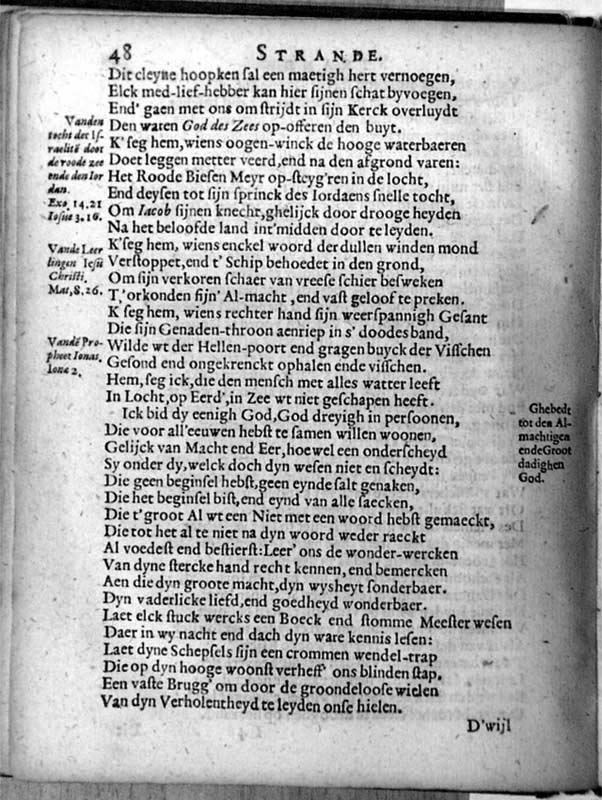 48 STRANDE.
Dit cleyne hoopken sal een maetigh hert vernoegen,
Elck med-lief-hebber kan hier sijnen schat byvoegen,
End' gaen met ons om strijdt in sijn Kerck overluydt
Den waren God des Zees op-offeren den buyt.
K' seg hem, wiens oogen-winck de hooge waterbaeren
Doet leggen metter veerd, end na den afgrond varen:
Het Roode Biesen Meyr op-steyg'ren in de locht,
End deysen tot sijn sprinck des Iordaens snelle tocht,
Om Iacob sijnen knecht, ghelijck door drooge heyden
Na het beloofde land int'midden door te leyden.
K'seg hem, wiens enckel woord der dullen winden mond
Verstoppet, end t' Schip behoedet in den grond,
Om sijn verkoren schaer van vreese schier besweken
T,'orkonden sijn' Al-macht, end vast geloof te preken.
K seg hem, wiens rechter hand sijn weerspannigh Gesant
Die sijn Genaden-throon aenriep in s' doodes band,
Wilde wt der Hellen-poort end gragen buyck der Visschen
Gesond end ongekrenckt ophalen ende visschen.
Hem, seg ick, die den mensch met alles watter leeft
In Locht, op Eerd', in Zee wt niet geschapen heeft.
Ick bid dy eenigh God, God dreyigh in persoonen,
Die voor all'eeuwen hebst te samen willen woonen,
Gelijck van Macht end Eer, hoewel een onderscheyd
Sy onder dy, welck doch dyn wesen niet en scheydt:
Die geen beginsel hebst, geen eynde salt genaken,
Die het beginsel bist, end eynd van alle saecken,
Die t'groot Al wt een Niet met een woord hebst gemaeckt,
Die tot het al te niet na dyn woord weder raeckt
Al voedest end bestierst: Leer' ons de wonder-wercken
Van dyne stercke hand recht kennen, end bemercken
Aen die dyn groote macht, dyn wysheyt sonderbaer.
Dyn vaderlicke liefd, end goedheyd wonderbaer.
Laet elck stuck wercks een Boeck end stomme Meester wesen
Daer in wy nacht end dach dyn ware kennis lesen:
Laet dyne Schepsels sijn een crommen wendel-trap
Die op dyn hooge woonst verheff' ons blinden stap.
Een vaste Brugg' om door de groondeloose wielen
Van dyn Verholentheyd te leyden onse hielen.
D'wijl
Vanden
tocht der Is-
raelitē door
de roode zee
ende den Ior
dan.
Exo. 14.21
Iosue 3.16.
Vande Leer
lingen Iesu
Christi.
Mat, 8.26.
Vandē Pro-
pheet Ionas.
Iona 2.
Ghebedt
tot den Al-
machtigen
ende Groot
dadighen
God.